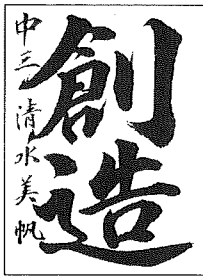 創造
中三 清水美帆